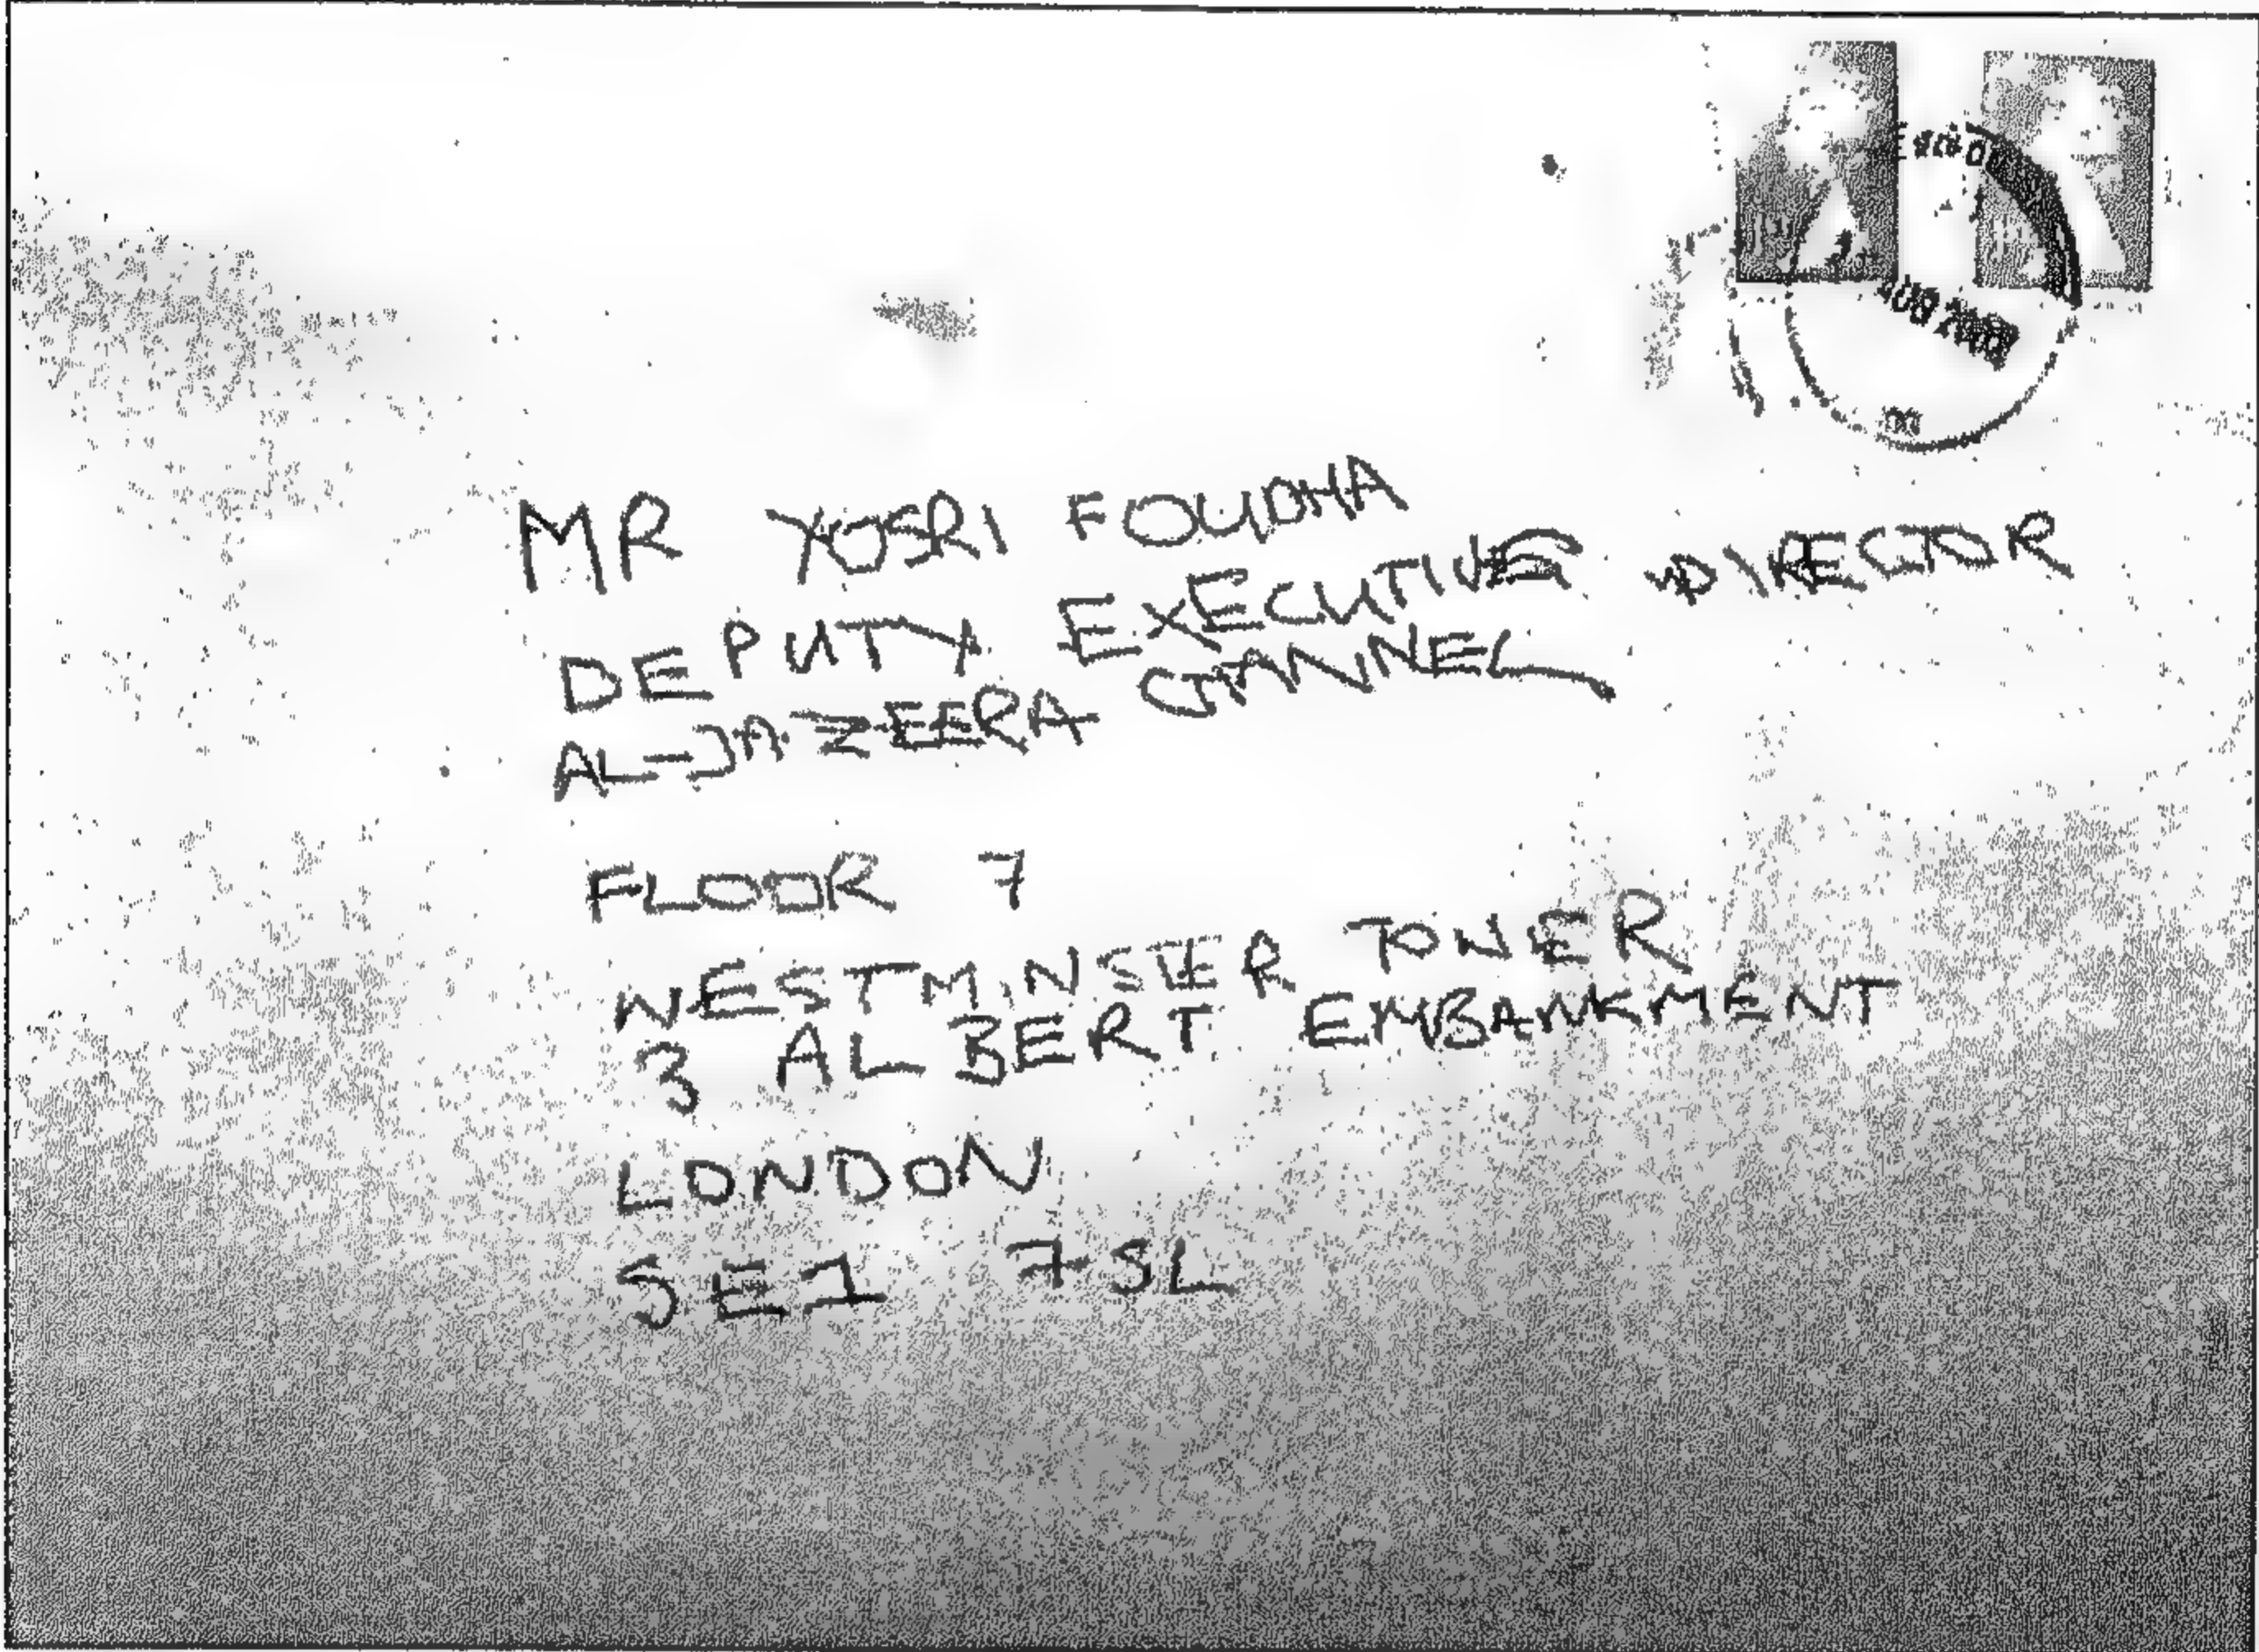 MR YOSRI FOUDHA
DEPUTY EXECUTIVE DIRECTOR
AL-JAZEERA CHANNEL
FLOOR 7
WESTMINSTER TOWER
3 ALBERT EMBANKMENT
LONDON
SE1 7SL